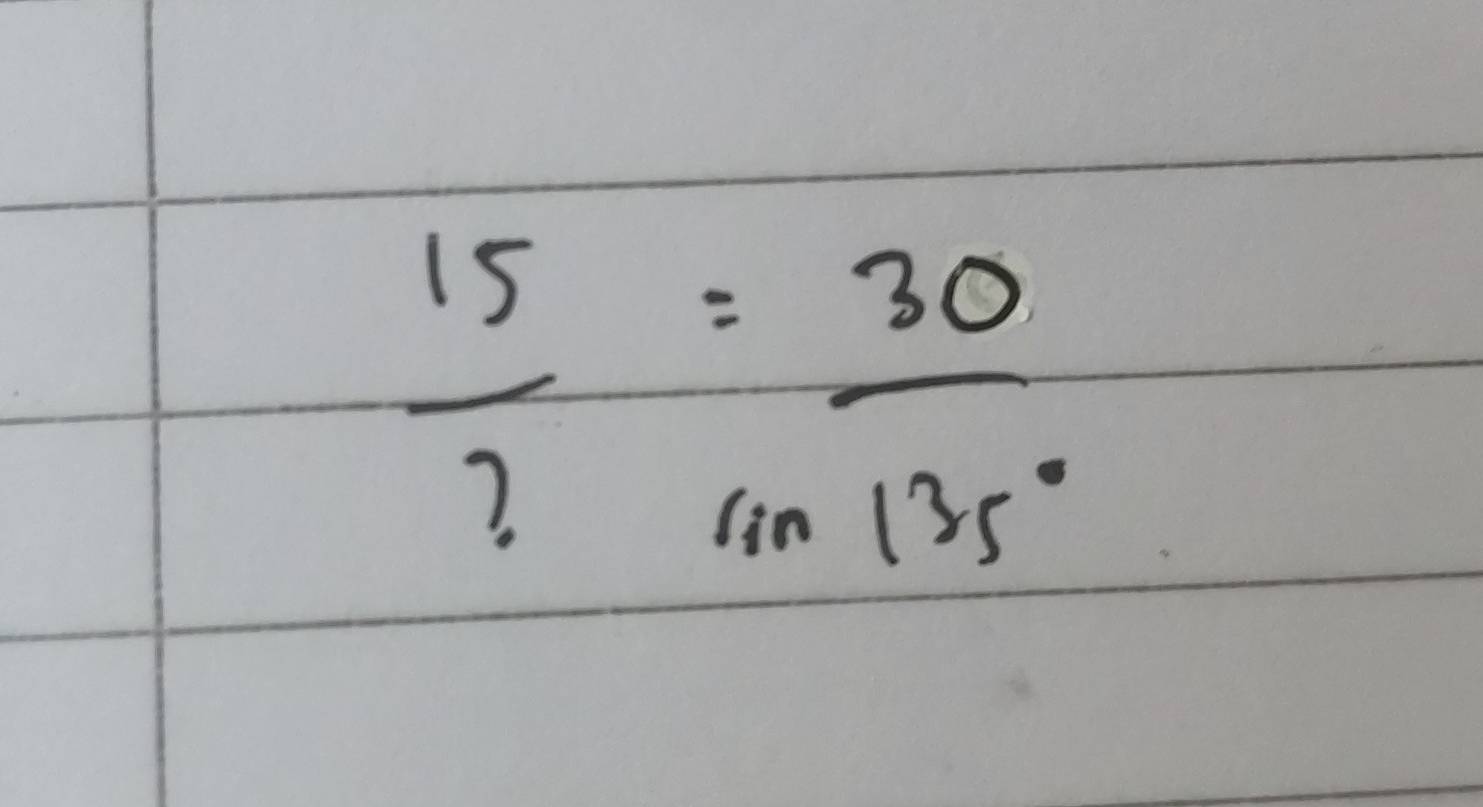 15 = 30
? sin 135°